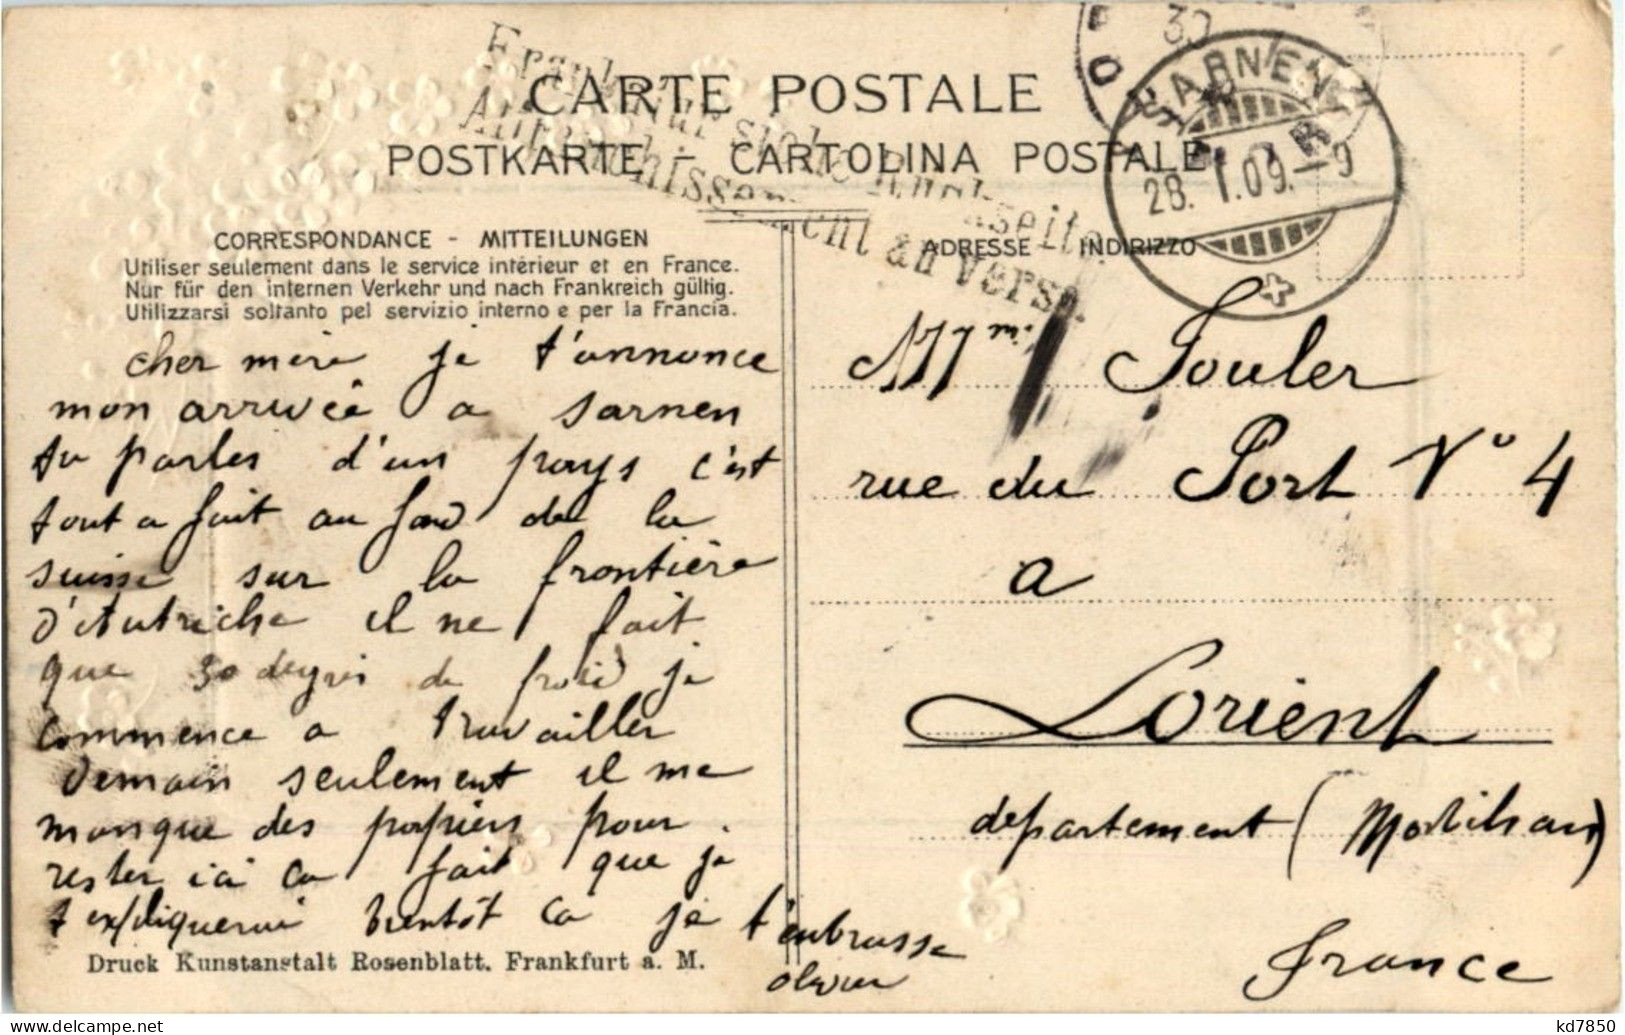 CARTE POSTALE
POSTKARTE - CARTOLINA POSTALE
SARNEN
28. I. 09. - 9
30
CORRESPONDANCE - MITTEILUNGEN
Utiliser seulement dans le service intérieur et en France.
Nur für den internen Verkehr und nach Frankreich gültig.
Utilizzarsi soltanto pel servizio interno e per la Francia.
ADRESSE INDIRIZZO
cher mère je t'annonce
mon arrivée a sarnen
tu parles d'un pays c'est
tout a fait au fond de la
suisse sur la frontière
d'Autriche il ne fait
que 30 degrés de froid je
commence a travailler
demain seulement il me
manque des papiers pour
rester ici ca fait que je
t'expliquerai bientôt ca je t'embrasse
Mme Souler
rue du Port N° 4
a
Lorient
departement (Morbihan)
France
Druck Kunstanstalt Rosenblatt, Frankfurt a. M.
kd7850